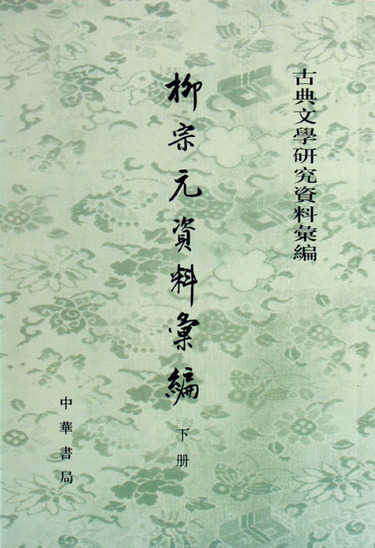 古典文學研究資料彙編
柳宗元資料彙編
下册
中華書局